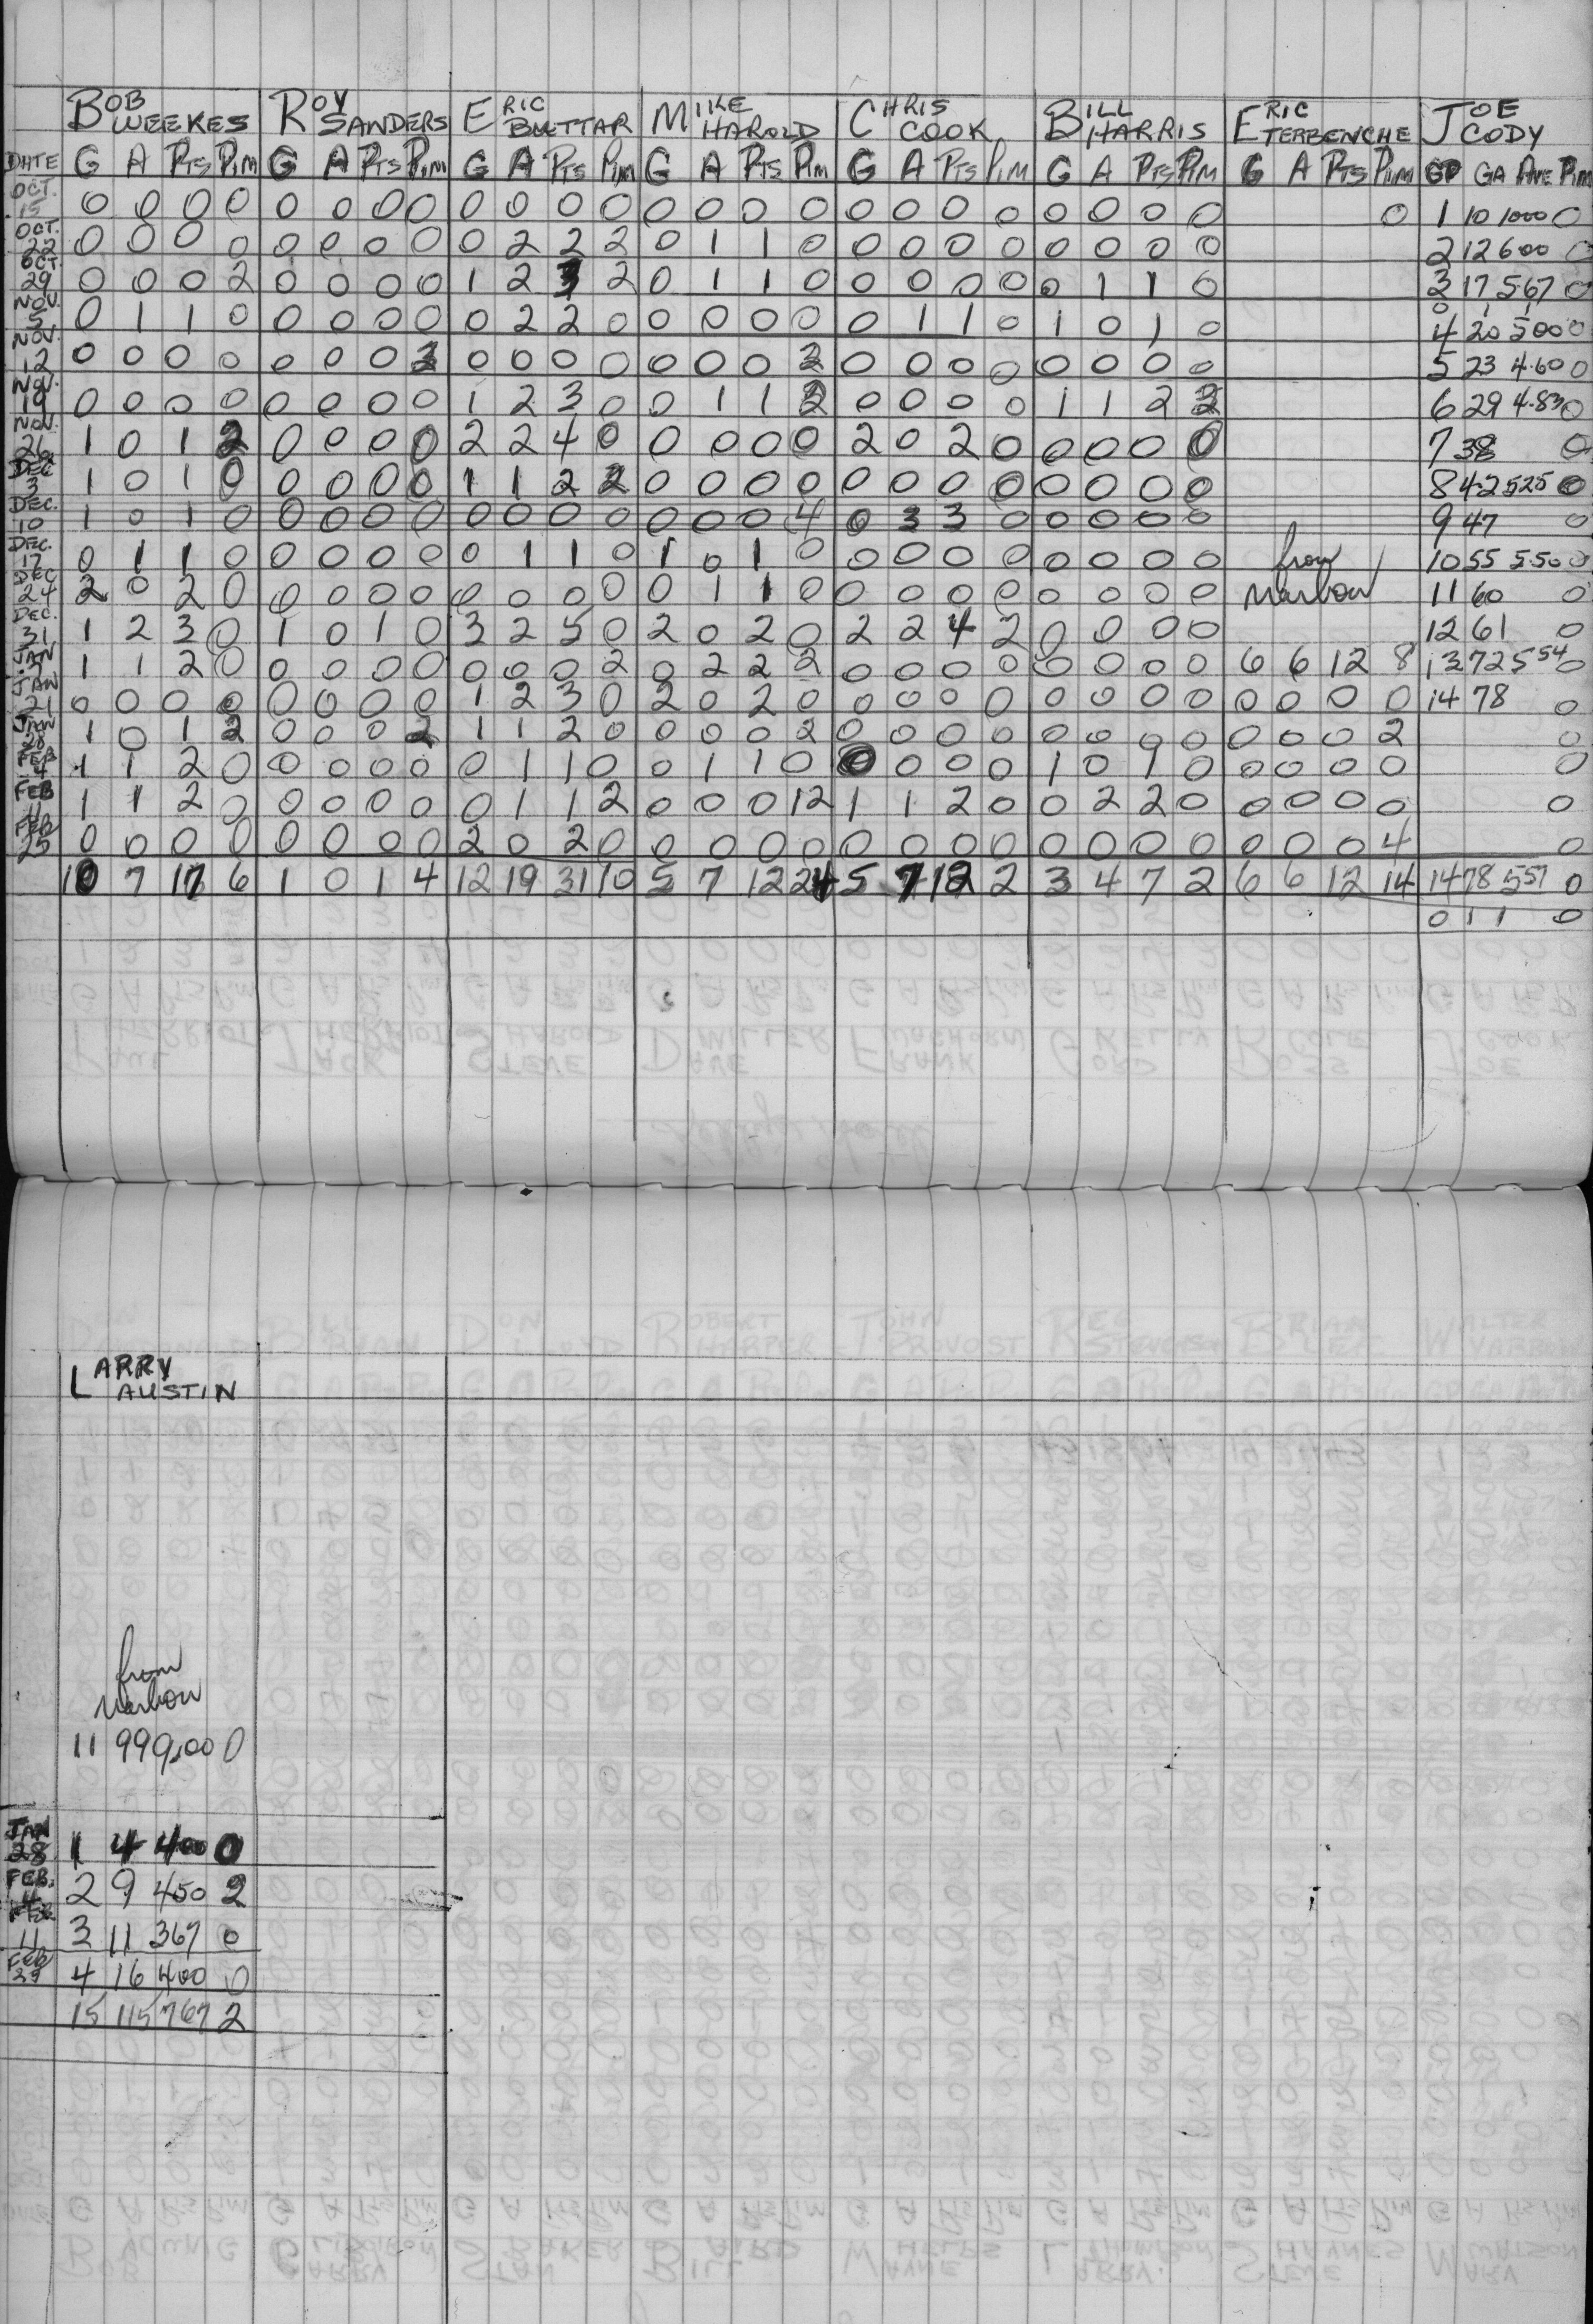 BOB WEEKES ROY SANDERS ERIC BUTTAR MIKE HAROLD CHRIS COOK BILL HARRIS ERIC TERBENCHE JOE CODY
DATE G A PTS PIM G A PTS PIM G A PTS PIM G A PTS PIM G A PTS PIM G A PTS PIM G A PTS PIM GP GA AVE PIM
OCT. 15 0 0 0 0 0 0 0 0 0 0 0 0 0 0 0 0 0 0 0 0 0 0 0 0 0 1 10 1000 0
OCT. 22 0 0 0 0 0 0 0 0 0 2 2 2 0 1 1 0 0 0 0 0 0 0 0 0 2 12 600 0
OCT 29 0 0 0 2 0 0 0 0 1 2 3 2 0 1 1 0 0 0 0 0 0 1 1 0 3 17 5.67 0
0 1 1
NOV. 5 0 1 1 0 0 0 0 0 0 2 2 0 0 0 0 0 0 1 1 0 1 0 1 0 4 20 500 0
NOV. 12 0 0 0 0 0 0 0 2 0 0 0 0 0 0 0 2 0 0 0 0 0 0 0 0 5 23 4.60 0
NOV. 19 0 0 0 0 0 0 0 0 1 2 3 0 0 1 1 2 0 0 0 0 1 1 2 2 6 29 4.83 0
NOV. 26 1 0 1 2 0 0 0 0 2 2 4 0 0 0 0 0 2 0 2 0 0 0 0 0 7 38 0
DEC 3 1 0 1 0 0 0 0 0 1 1 2 2 0 0 0 0 0 0 0 0 0 0 0 0 8 42 525 0
DEC. 10 1 0 1 0 0 0 0 0 0 0 0 0 0 0 0 4 0 3 3 0 0 0 0 0 9 47 0
DEC. 17 0 1 1 0 0 0 0 0 0 1 1 0 1 0 1 0 0 0 0 0 0 0 0 0 from 10 55 5.50 0
DEC 24 2 0 2 0 0 0 0 0 0 0 0 0 0 1 1 0 0 0 0 0 0 0 0 0 Marbon 11 60 0
DEC. 31 1 2 3 0 1 0 1 0 3 2 5 0 2 0 2 0 2 2 4 2 0 0 0 0 12 61 0
JAN 1 1 2 0 0 0 0 0 0 0 0 2 0 2 2 2 0 0 0 0 0 0 0 0 6 6 12 8 13 72 554 0
JAN 21 0 0 0 0 0 0 0 0 1 2 3 0 2 0 2 0 0 0 0 0 0 0 0 0 0 0 0 0 14 78 0
JAN 28 1 0 1 2 0 0 0 2 1 1 2 0 0 0 0 2 0 0 0 0 0 0 0 0 0 0 0 2 0
FEB 4 1 1 2 0 0 0 0 0 0 1 1 0 0 1 1 0 0 0 0 0 1 0 1 0 0 0 0 0 0
FEB 11 1 1 2 0 0 0 0 0 0 1 1 2 0 0 0 12 1 1 2 0 0 2 2 0 0 0 0 0 0
FEB 25 0 0 0 0 0 0 0 0 2 0 2 0 0 0 0 0 0 0 0 0 0 0 0 0 0 0 0 4 0
10 7 17 6 1 0 1 4 12 19 31 10 5 7 12 24 5 7 12 2 3 4 7 2 6 6 12 14 14 78 557 0
0 1 1 0
LARRY AUSTIN
from
Marbon
11 99 9.00 0
JAN 28 1 4 400 0
FEB. 4 2 9 450 2
FEB 11 3 11 367 0
FEB 4 16 400 0
15 115 767 2